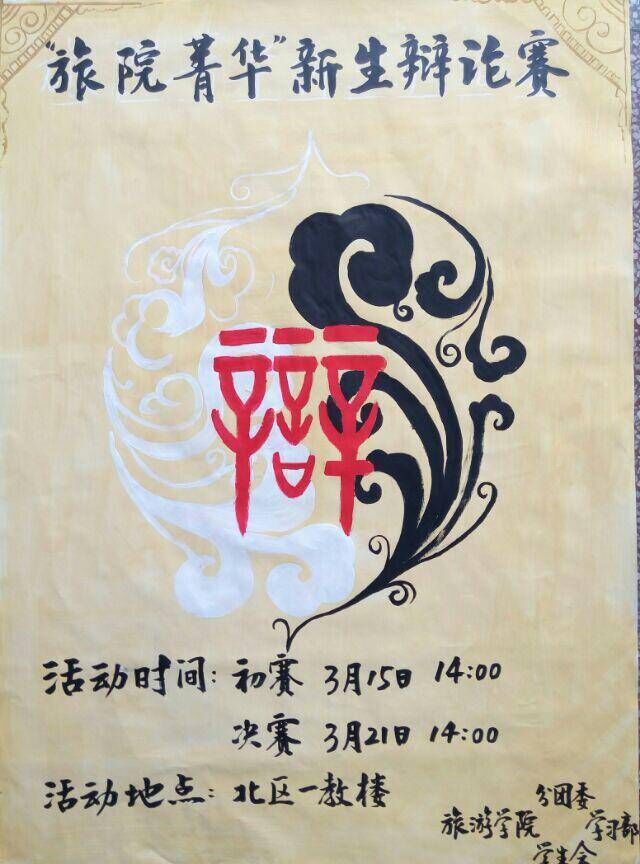 “旅院菁华”新生辩论赛
辩
活动时间：初赛 3月15日 14:00
决赛 3月21日 14:00
活动地点：北区一教楼
分团委
旅游学院 学习部
学生会